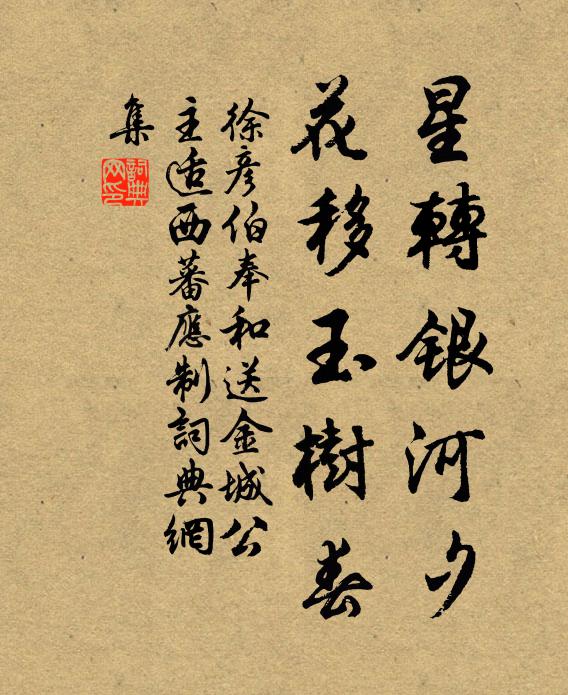 星轉銀河夕
花移玉樹春
徐彦伯奉和送金城公
主适西蕃應制詞典網
集
詞典
网印